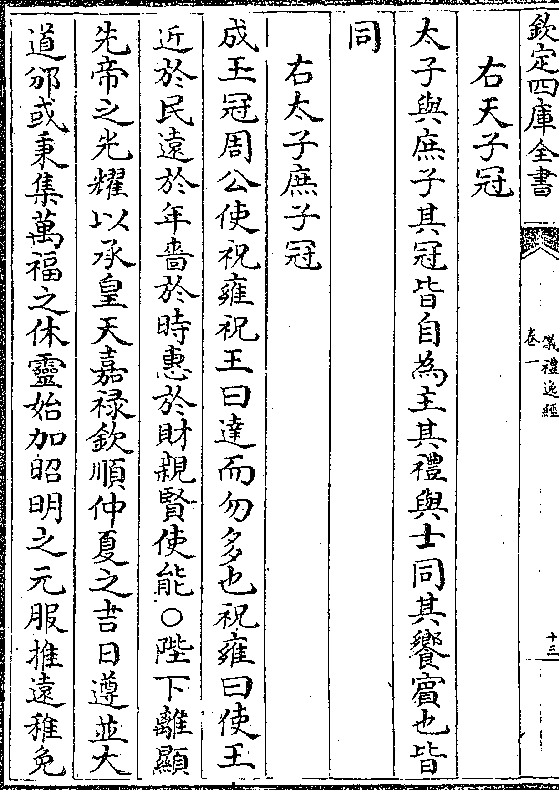 欽定四庫全書
儀禮逸經
卷一
十三
右天子冠
太子與庶子其冠皆自為主其禮與士同其饗賓也皆
同
右太子庶子冠
成王冠周公使祝雍祝王曰達而勿多也祝雍曰使王
近於民遠於年嗇於時惠於財親賢使能○陛下離顯
先帝之光耀以承皇天嘉禄欽順仲夏之吉日遵並大
道邠或秉集萬福之休靈始加昭明之元服推遠稚免